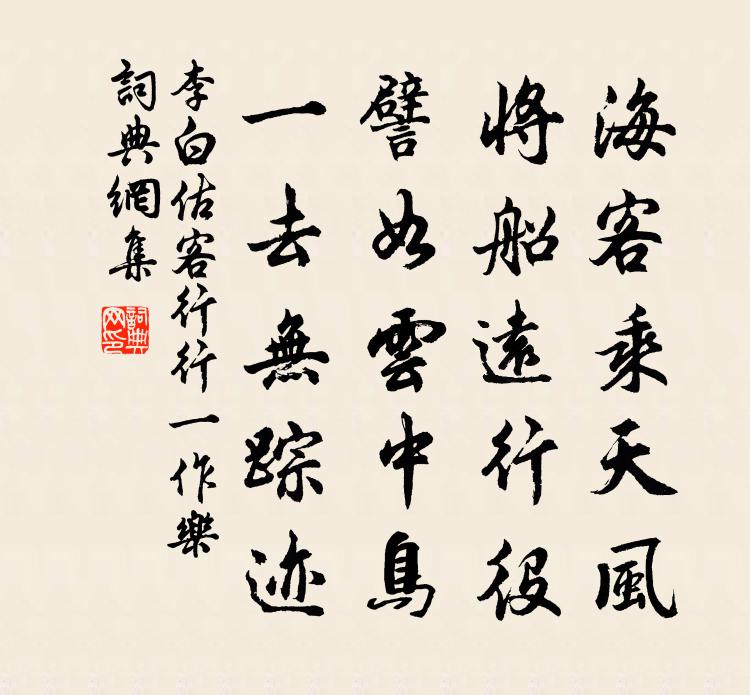 海客乘天風
將船遠行役
譬如雲中鳥
一去無踪迹
李白估客行行一作樂
詞典網集
詞典网印